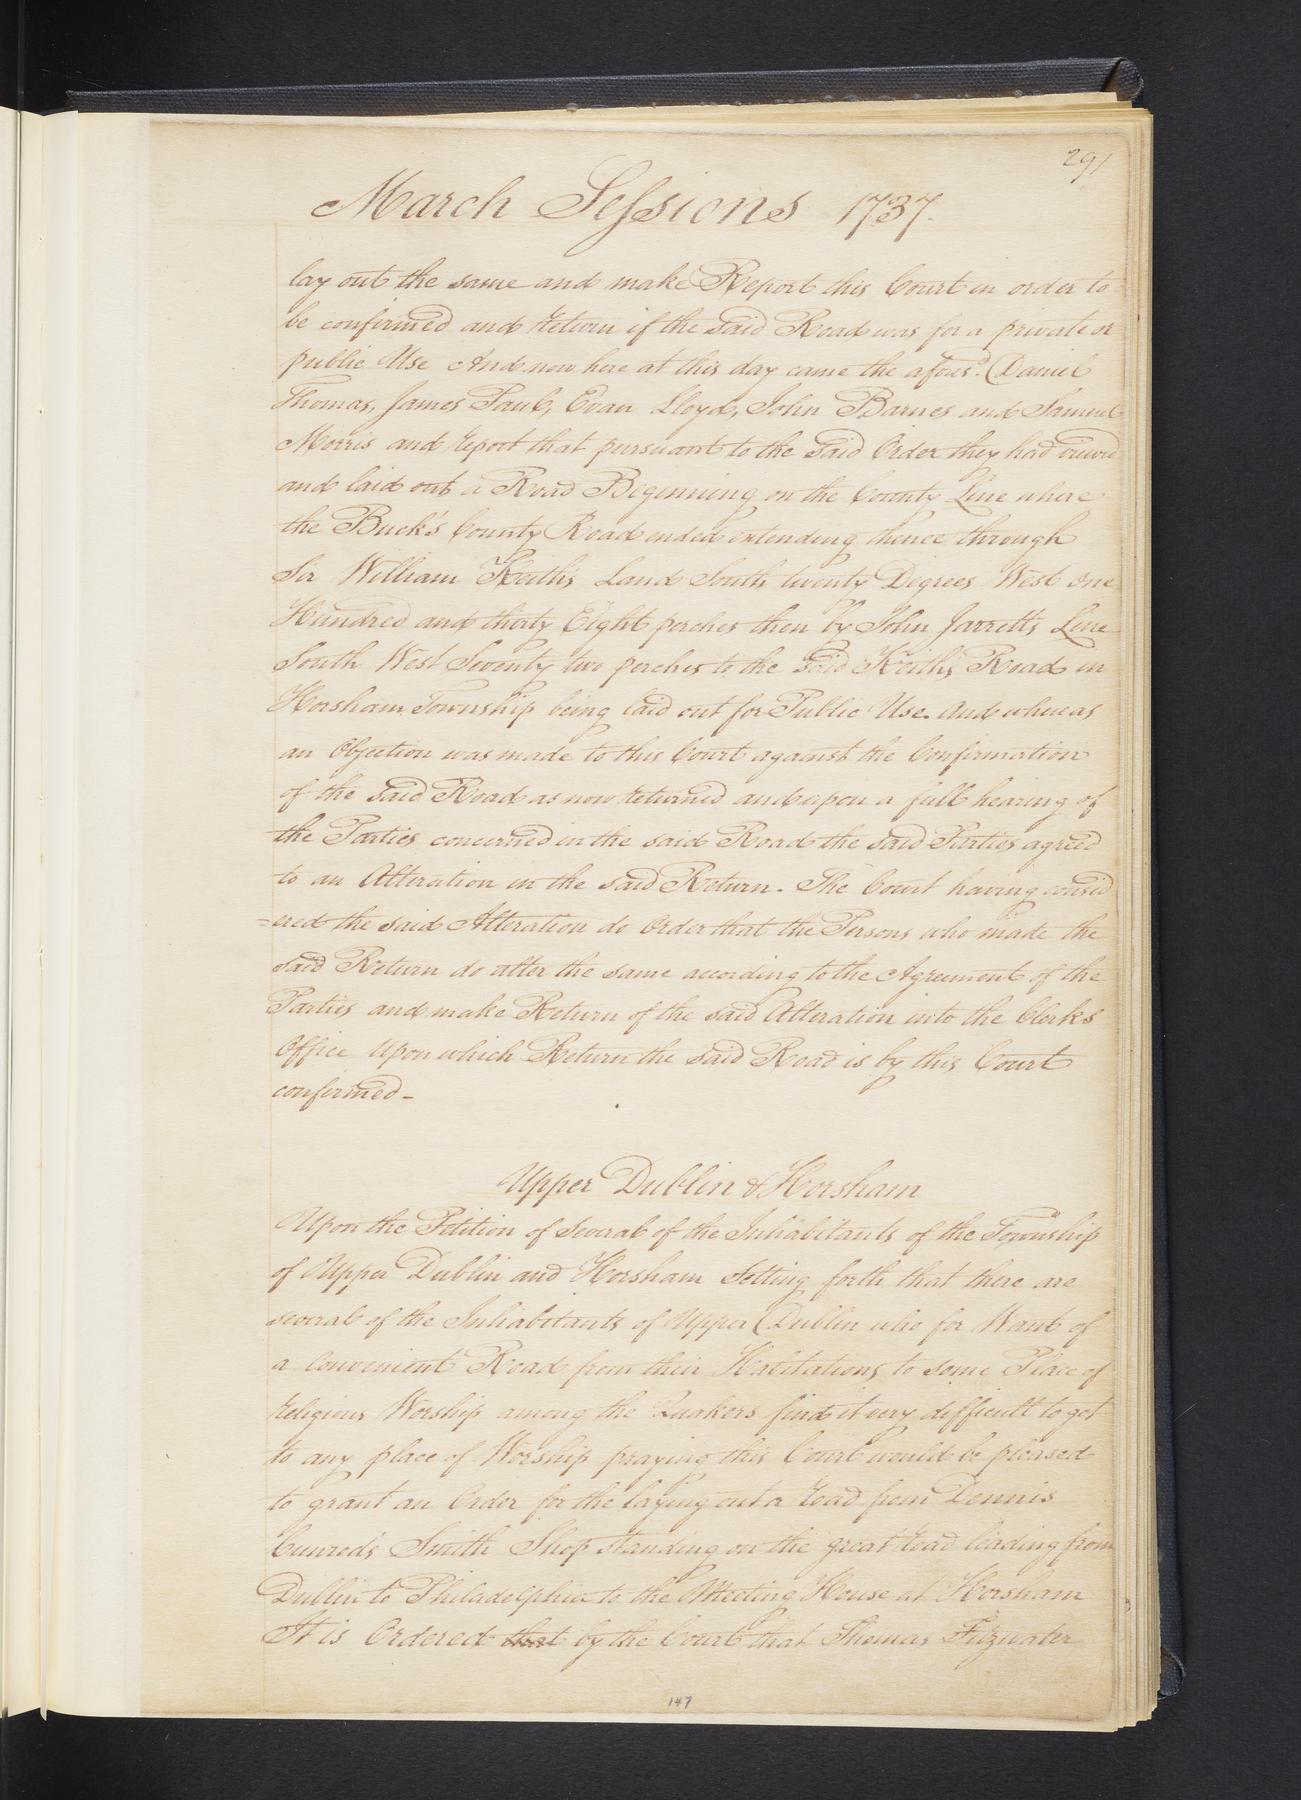 291
March Sessions 1737.
lay out the same and make Report this Court in order to
be confirmed and return if the said Road was for a private or
public Use And now here at this day came the afores.d Daniel
Thomas, James Paul, Evan Lloyd, John Barnes and Samuel
Morris and report that pursuant to the said Order they had viewed
and laid out a Road Beginning on the County Line where
the Buck's County Road ended extending thence through
Sir William Keith's Land South twenty Degrees West one
Hundred and thirty Eight perches then by John Jarrett's Line
South West Seventy two perches to the said Keith's Road in
Horsham Township being laid out for Public Use. And whereas
an Objection was made to this Court against the Confirmation
of the said Road as now returned and upon a full hearing of
the Parties concerned in the said Road the said Parties agreed
to an Alteration in the said Return. The Court having consid
=ered the said Alteration do Order that the Persons who made the
said Return do alter the same according to the Agreement of the
Parties and make Return of the said Alteration into the Clerks
Office Upon which Return the said Road is by this Court
confirmed -
Upper Dublin & Horsham
Upon the Petition of Several of the Inhabitants of the Township
of Upper Dublin and Horsham Setting forth that there are
several of the Inhabitants of Upper Dublin who for Want of
a Convenient Road from their Habitations to some Place of
religious Worship among the Quakers find it very difficult to get
to any place of Worship praying this Court would be pleased
to grant an Order for the laying out a road from Dennis
Cunred's Smith Shop standing on the great road leading from
Dublin to Philadelphia to the Meeting House at Horsham
It is Ordered that by the Court that Thomas Fitzwater
147